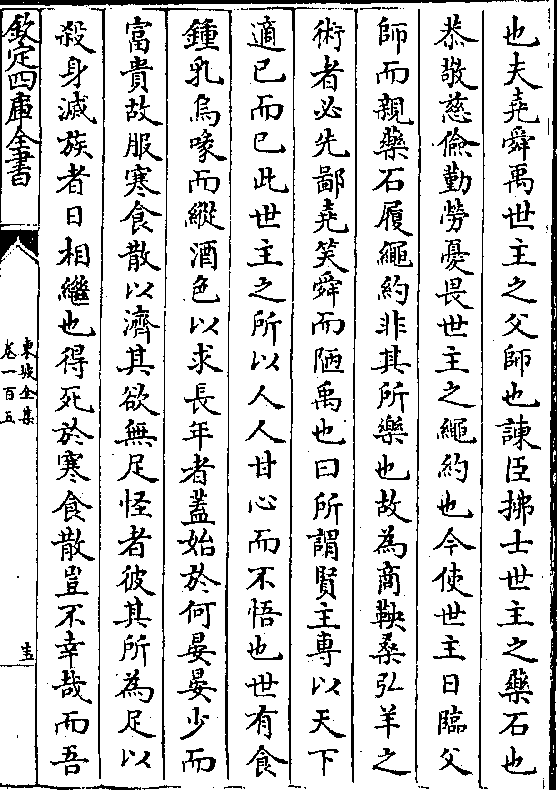 也夫堯舜禹世主之父師也諫臣拂士世主之藥石也
恭敬慈儉勤勞憂畏世主之繩約也今使世主日臨父
師而親藥石履繩約非其所樂也故為商鞅桑弘羊之
術者必先鄙堯笑舜而陋禹也曰所謂賢主專以天下
適己而已此世主之所以人人甘心而不悟也世有食
鍾乳烏喙而縱酒色以求長年者蓋始於何晏晏少而
富貴故服寒食散以濟其欲無足怪者彼其所為足以
殺身滅族者日相繼也得死於寒食散豈不幸哉而吾
欽定四庫全書
東坡全集
卷一百五